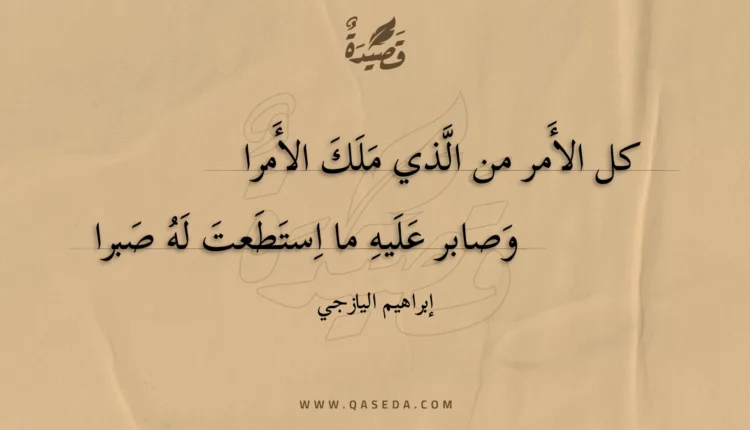 قَصِيدَةٌ
كل الأَمر من الَّذي مَلَكَ الأَمرا
وَصابر عَلَيهِ ما اِستَطَعتَ لَهُ صَبرا
إبراهيم اليازجي
WWW.QASEDA.COM